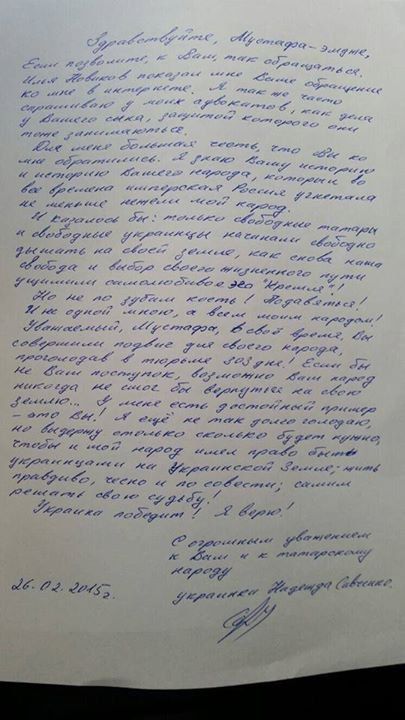 Здравствуйте, Мустафа-эмдже,
Если позволите, к Вам, так обращаться.
Илья Новиков показал мне Ваше обращение
ко мне в интернете. Я так же часто
спрашиваю у моих адвокатов, как дела
у Вашего сына, защитой которого они
тоже занимаються.
Для меня большая честь, что Вы ко
мне обратились. Я знаю Вашу историю
и историю Вашего народа, который во
все времена имперская Россия угнетала
не меньше нежели мой народ.
И казалось бы: только свободные татары
и свободные украинцы начинали свободно
дышать на своей земле, как снова наша
свобода и выбор своего жизненного пути
ущимили самолюбивое эго "Кремля"!
Но не по зубам кость! Подавяться!
И не одной мною, а всем моим народом!
Уважаемый, Мустафа, в своё время, Вы
совершили подвиг для своего народа,
проголодав в тюрьме 303 дня! Если бы
не Ваш поступок, возможно Ваш народ
никогда не смог бы вернуться на свою
землю... У меня есть достойный пример
- это Вы! Я ещё не так долго голодаю,
но выдержу столько сколько будет нужно,
чтобы и мой народ имел право быть
украинцами на Украинской Земле; жить
правдиво, чесно и по совести; самим
решать свою судьбу!
Украина победит! Я верю!
С огромным уважением
к Вам и к татарскому
народу
26.02.2015г. украинка Надежда Савченко.